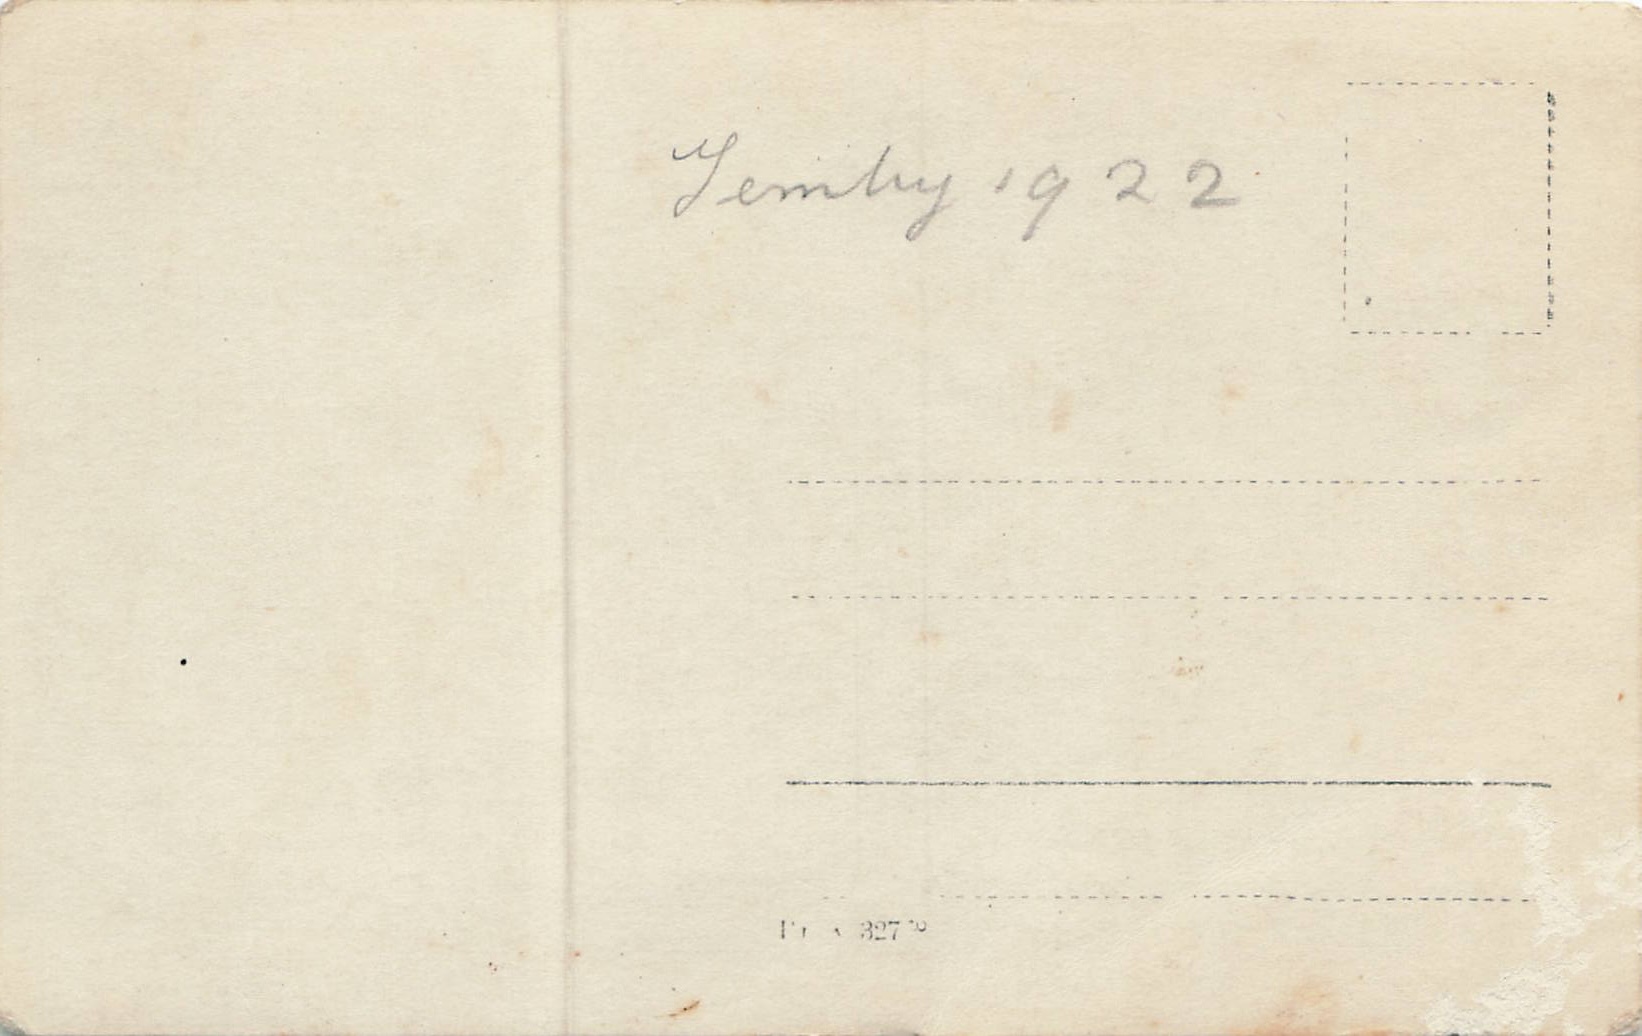 Tenby 1922
327